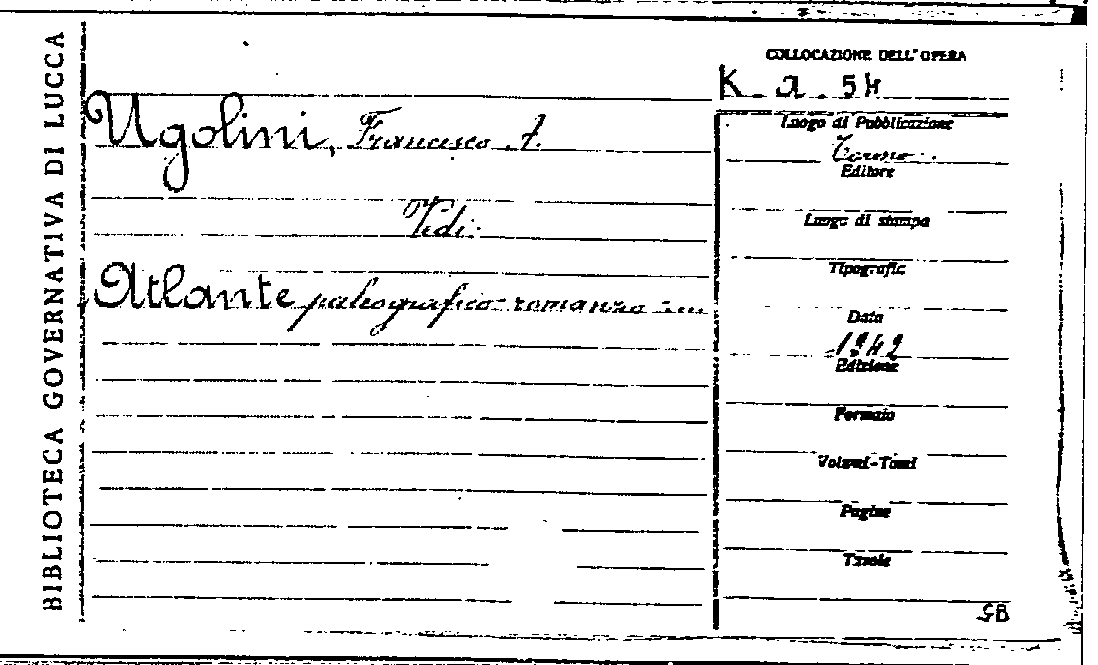 BIBLIOTECA GOVERNATIVA DI LUCCA
COLLOCAZIONE DELL'OPERA
K. a. 54
Ugolini, Francesco A.
Vedi:
Atlante paleografico romanzo ....
Luogo di Pubblicazione
Torino.
Editore
Luogo di stampa
Tipografic
Data
1942
Edizione
Formato
Volumi-Tomi
Pagine
Tavole
GB